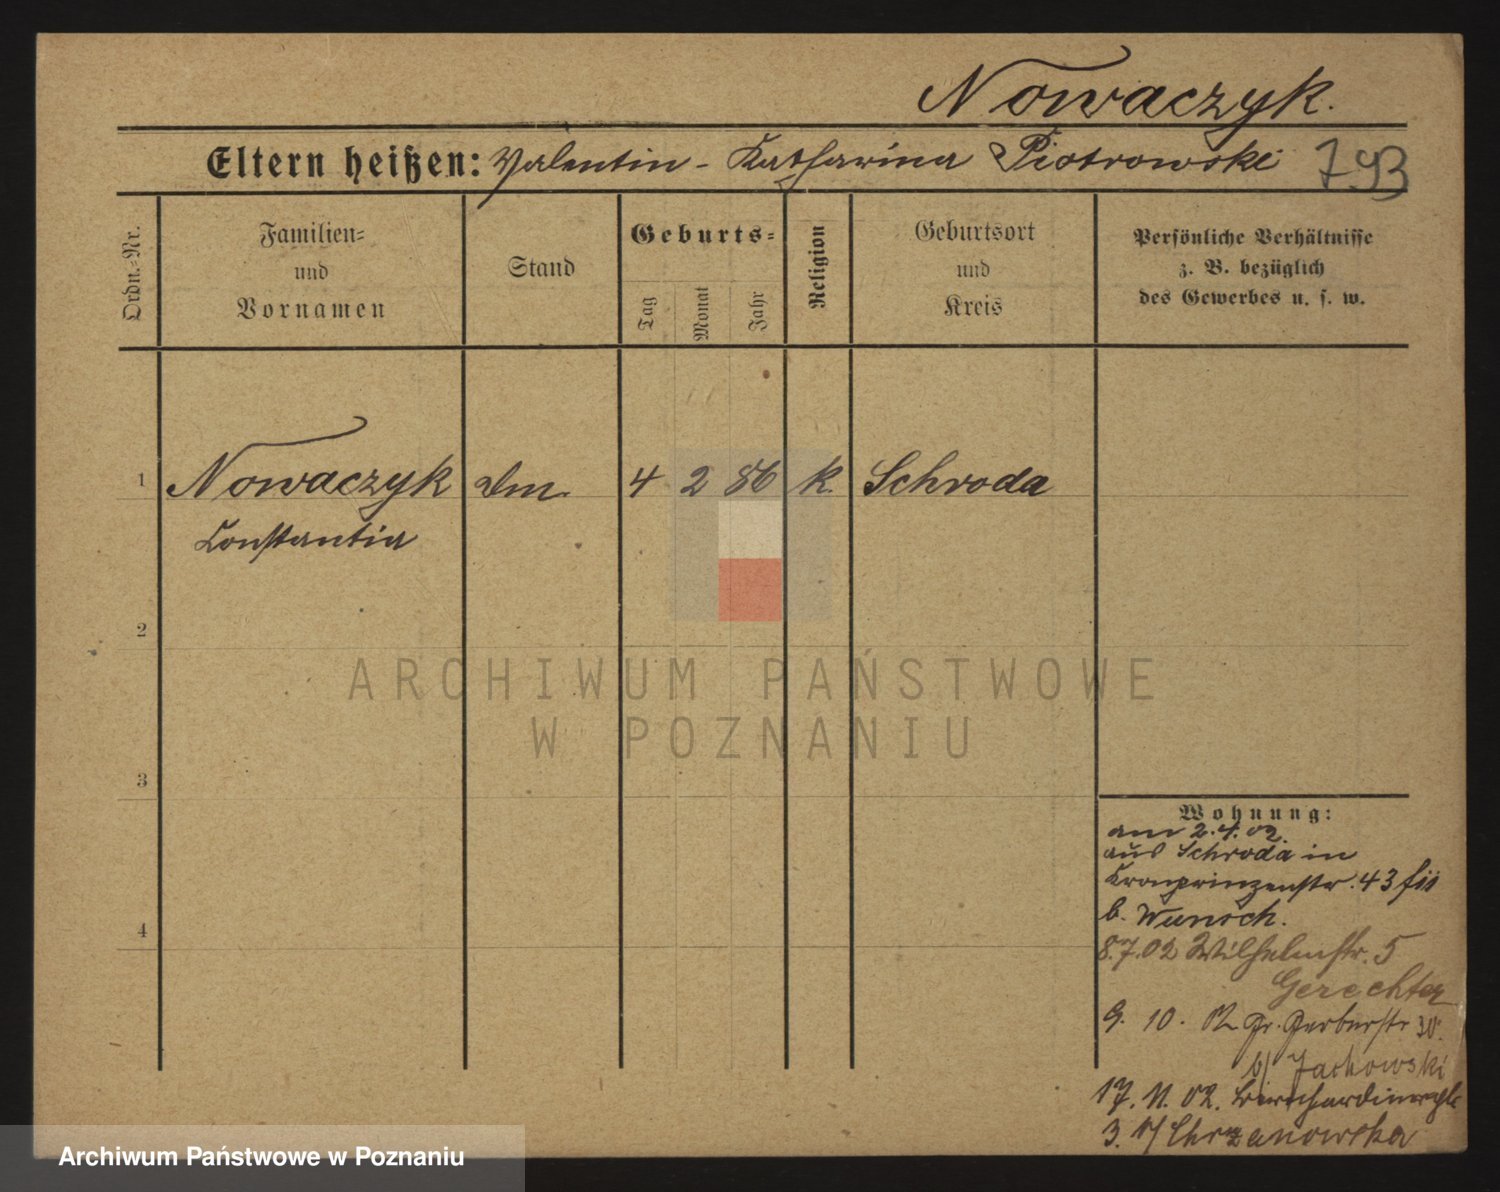 Nowaczyk.
Eltern heißen: Valentin - Katharina Piotrowski 793
Ordn.-Nr.
Familien-
und
Vornamen
Stand
Geburts-
Tag
Monat
Jahr
Religion
Geburtsort
und
Kreis
Persönliche Verhältnisse
z. B. bezüglich
des Gewerbes u. s. w.
1 Nowaczyk 4 2 86 k. Schroda
Constantia
2
ARCHIWUM PAŃSTWOWE
W POZNANIU
3
Wohnung:
am 2.4.02.
aus Schroda in
Kronprinzenstr. 43
b. Wunsch.
4
8.7.02 Wilhelmstr. 5
Gerechter
9. 10. 02 Gr. Gerberstr 30.
b/ Jachowski
17. 11. 02. Bernhardinerpl.
3. b/ Chrzanowska
Archiwum Państwowe w Poznaniu